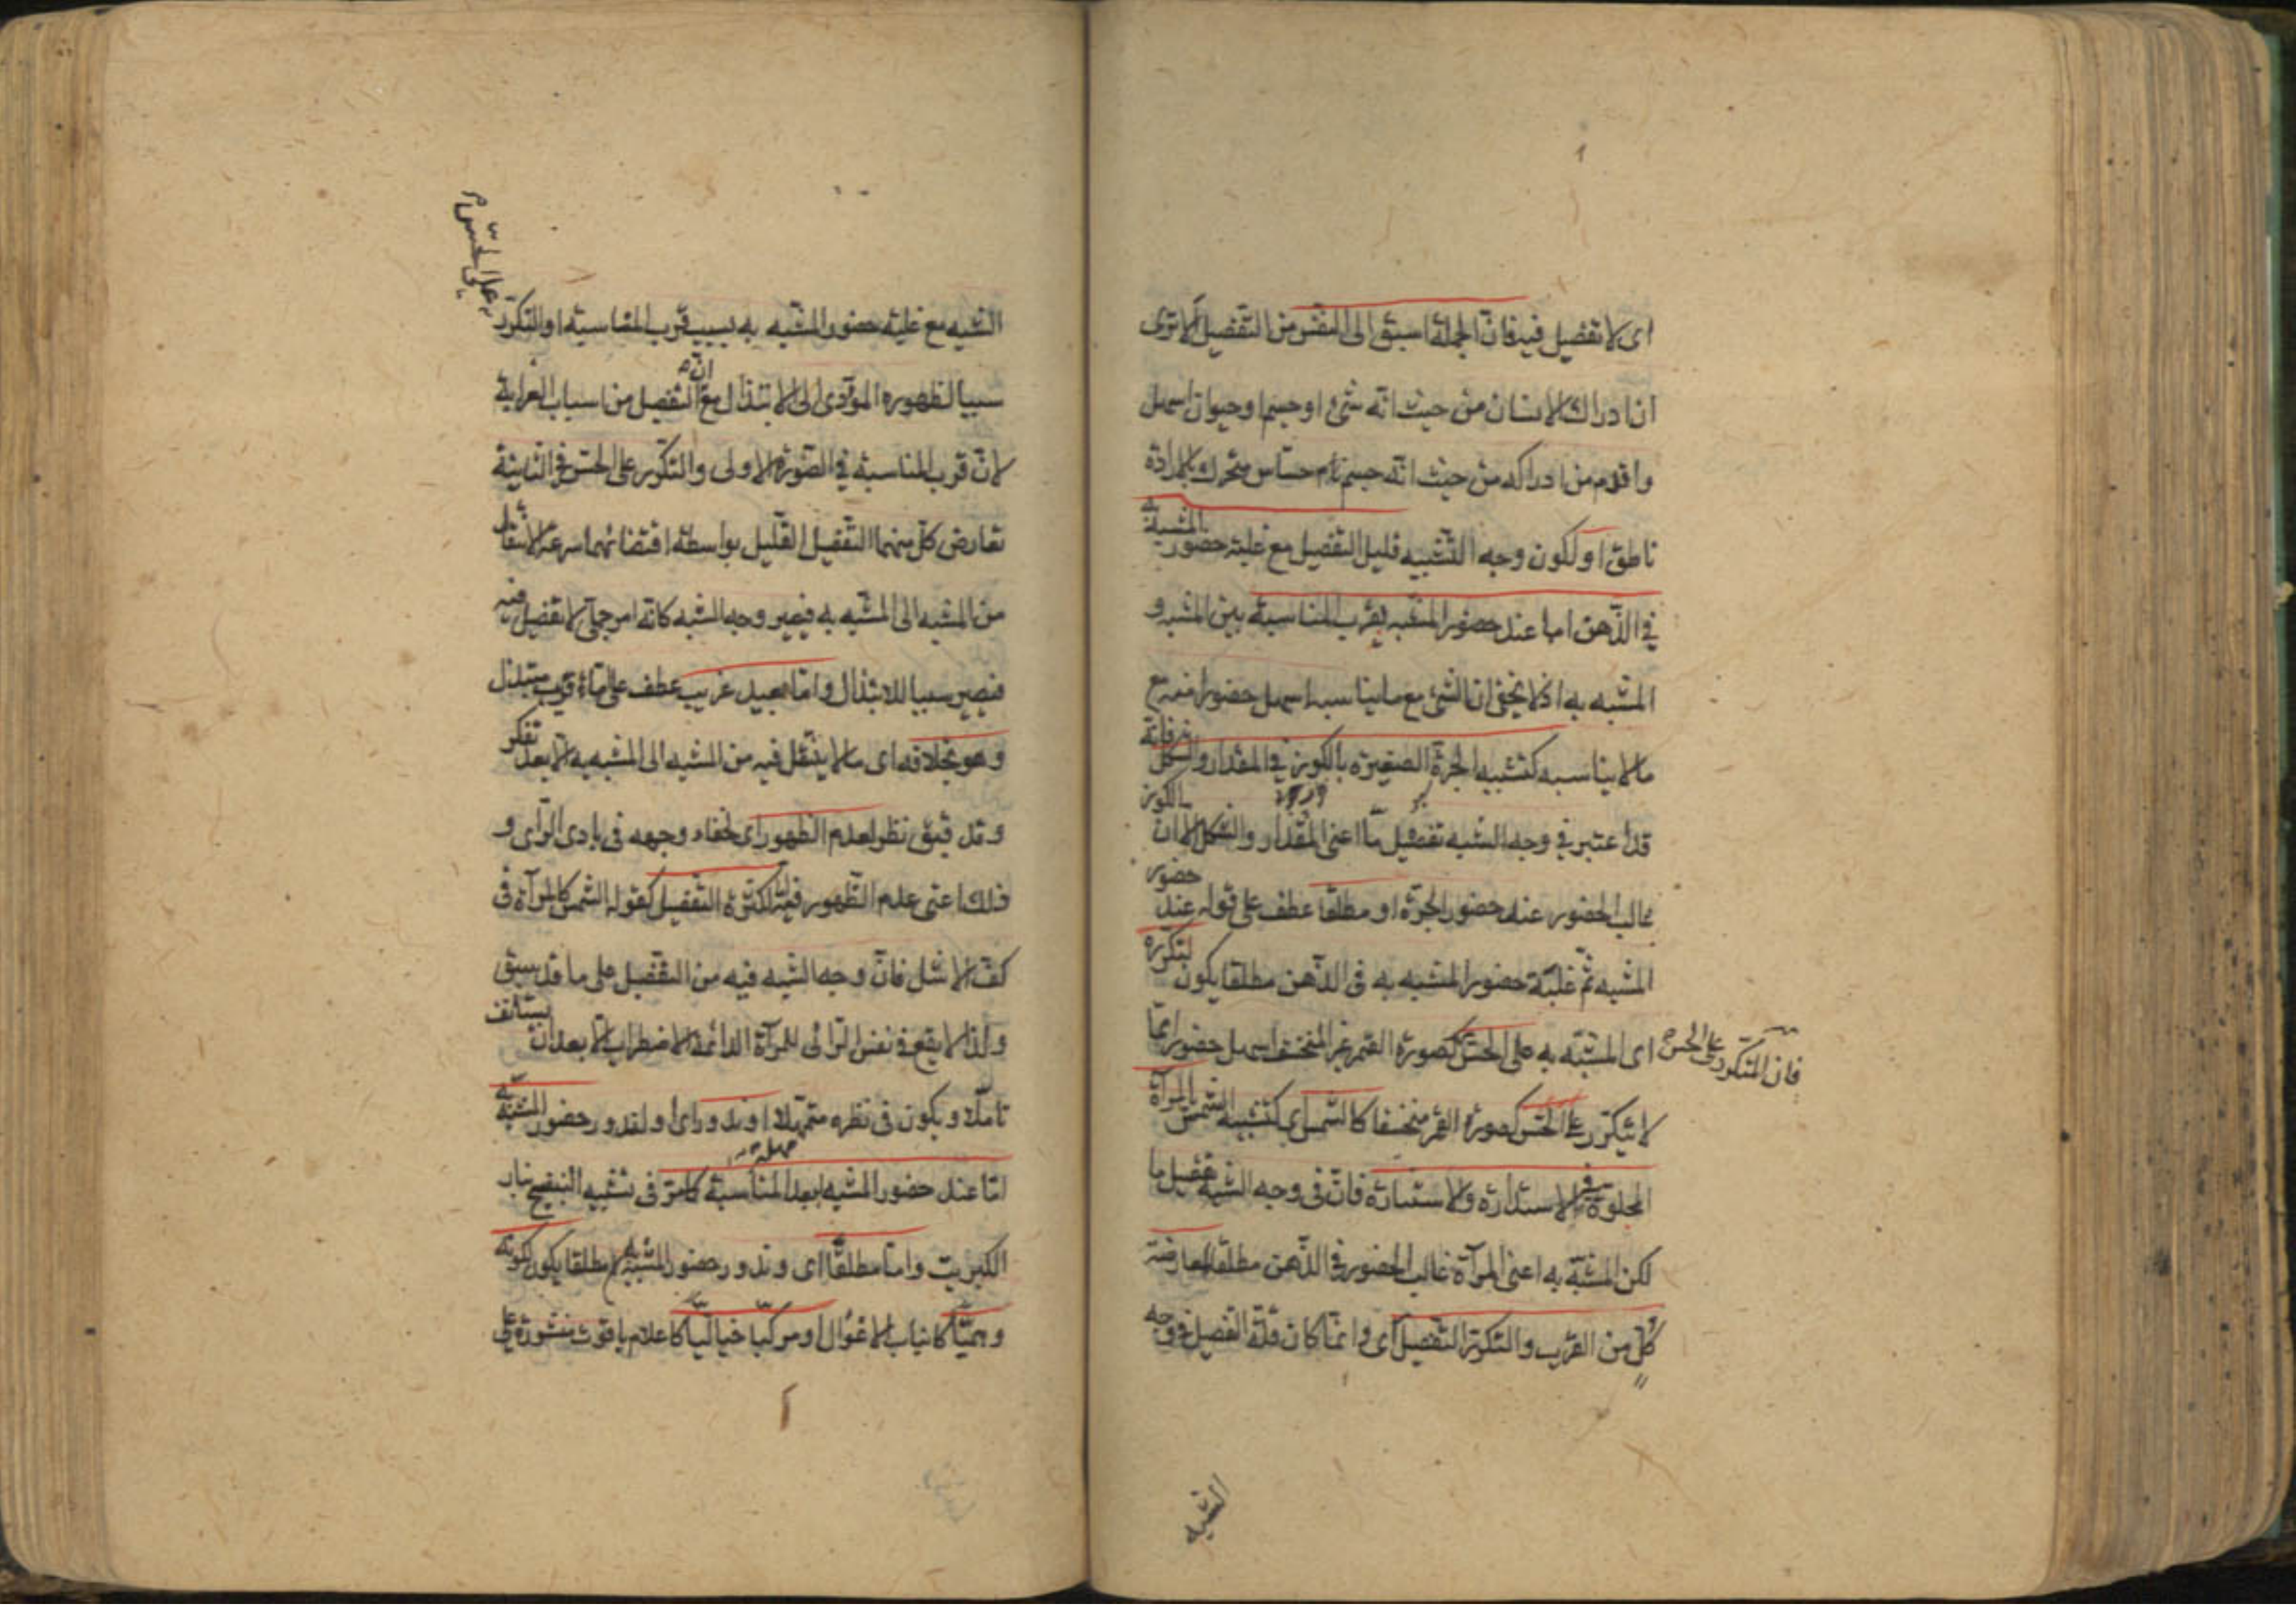 اى لا تفضيل فيه فان الجملة اسبق الى النفس من التفصيل الا ترى
ان ادراك الانسان من حيث انه شئ او جسم او حيوان اسهل
واقدم من ادراكه من حيث انه جسم نام حساس متحرك بالارادة
ناطق او لكون وجه التشبيه قليل التفصيل مع غلبة حضور المشبه به
في الذهن اما عند حضور المشبه لقرب المناسبة بين المشبه و
المشبه به اذ لا يخفى ان الشئ مع ما يناسبه اسهل حضورا منه مع
ما لا يناسبه كتشبيه الجرة الصغيرة بالكوز في المقدار والشكل فانه
قد اعتبر في وجه الشبه تفصيل ما اعنى المقدار والشكل الا ان الكوز
غالب الحضور عند حضور الجرة او مطلقا عطف على قوله عند حضور
المشبه ثم غلبة حضور المشبه به فى الذهن مطلقا يكون لتكرره
اى المشبه به على الحس كصورة القمر غير المنخسف اسهل حضورا مما
فان المتكرر على الحس
لا يتكرر على الحس كصورة القمر منخسفا كالشمس اى كتشبيه الشمس بالمرآة
المجلوة في الاستدارة والاستنارة فان فى وجه الشبه تفصيل ما
لكن المشبه به اعنى المرآة غالب الحضور في الذهن مطلقا لمعارضة
كل من القرب والتكرر التفصيل اى وانما كان قلة التفصيل فى وجه
الشبه
الشبه مع غلبة حضور المشبه به بسبب قرب المناسبة او التكرر
على الحس
سببا لظهوره المؤدى الى الابتذال مع ان التفصيل من اسباب الغرابة
لان قرب المناسبة في الصورة الاولى والتكرر على الحس في الثانية
تعارض كل منهما التفصيل القليل بواسطة اقتضائهما سرعة الانتقال
من المشبه الى المشبه به فيصير وجه الشبه كانه امر جملى لا تفصيل فيه
فيصير سببا للابتذال واما بعيد غريب عطف على اما قريب مبتذل
وهو بخلافه اى ما لا ينتقل فيه من المشبه الى المشبه به الا بعد تفكر
وتدقيق نظر لعدم الظهور اى لخفاء وجهه فى بادى الراى و
ذلك اعنى عدم الظهور فيه لكثرة التفصيل كقوله الشمس كالمرآة فى
كف الاشل فان وجه الشبه فيه من التفصيل على ما قد سبق
ولذا لا يقع فى نفس الرائى للمرآة الدائمة الاضطراب الا بعد ان يستأنف
تاملا ويكون فى نظره متمهلا او ندور اى او لندور حضور المشبه به
اما عند حضور المشبه لبعد المناسبة كما مر فى تشبيه البنفسج بنار
الكبريت واما مطلقا اى وندور حضور المشبه به مطلقا يكون لكونه
وهميا كانياب الاغوال او مركبا خياليا كاعلام ياقوت منشورة على